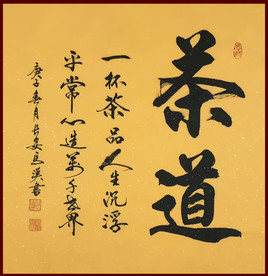 茶道
一杯茶品人生沉浮
平常心造万千世界
庚子春月长安
书